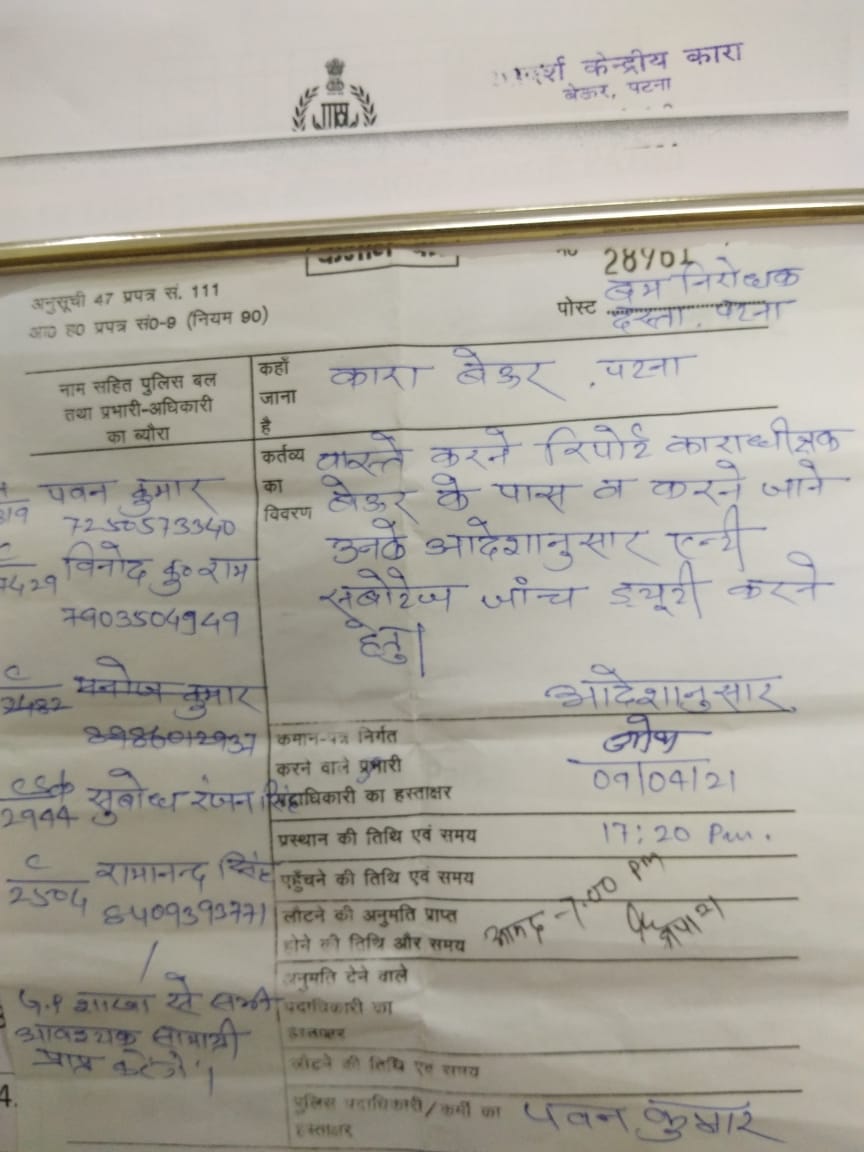 केन्द्रीय कारा
बेऊर, पटना
28401
अनुसूची 47 प्रपत्र सं. 111
आ0 ह0 प्रपत्र सं0-9 (नियम 90)
पोस्ट बम निरोधक
दस्ता, पटना
नाम सहित पुलिस बल
तथा प्रभारी-अधिकारी
का ब्यौरा
कहाँ
जाना
है
कारा बेऊर, पटना
कर्तव्य
का
विवरण
वास्ते करने रिपोर्ट काराधीक्षक
बेऊर के पास व करने जाने
उनके आदेशानुसार एन्टी
सबोटेज जांच ड्यूटी करने
हेतु।
आदेशानुसार
पवन कुमार
7250573340
विनोद कु० राम
7903504949
C/2482 मनोज कुमार
8986012937
2944 सुबोध रंजन सिंह
C/2504 रामानन्द सिंह
8409393771
G.P शाखा से सभी
आवश्यक सामाग्री
प्राप्त करेंगे।
कमान-पत्र निर्गत
करने वाले प्रभारी
पदाधिकारी का हस्ताक्षर
09/04/21
प्रस्थान की तिथि एवं समय
17:20 Pm.
पहुँचने की तिथि एवं समय
लौटने की अनुमति प्राप्त
होने की तिथि और समय
आमद - 7:00 pm
अनुमति देने वाले
पदाधिकारी का
हस्ताक्षर
लौटने की तिथि एवं समय
पुलिस पदाधिकारी/कर्मी का
हस्ताक्षर
पवन कुमार
4.